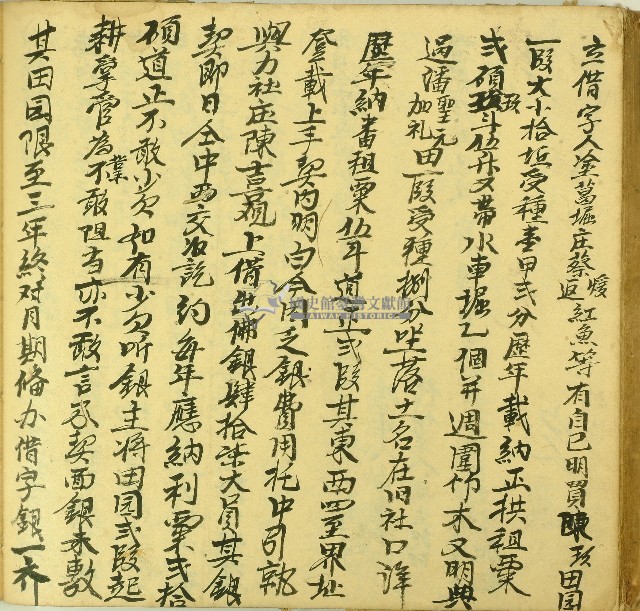 立借字人塗葛堀庄蔡煖返紅魚等有自己明買陳玖田園
一段大小拾坵受種壹甲弍分歷年載納正供租粟
弍碩玖斗伍升又帶水車堀乙個并週圍竹木又明典
過潘聖元加礼田一段受種捌分坐落土名在旧社口洋
歷年納番租粟伍斗道正弍段其東西四至界址
登載上手契內明白今因乏銀費用托中引就
與力社庄陳吉觀上借出佛銀肆拾柒大員其銀
契即日仝中両交收訖約每年應納利粟弍拾
碩道正不敢少欠如有少欠听銀主將田园弍段起
耕掌管為業不敢阻當亦不敢言及契面銀未敷
其田园限至三年終对月期俻办借字銀一齐
國史館臺灣文獻館
TAIWAN HISTORICA